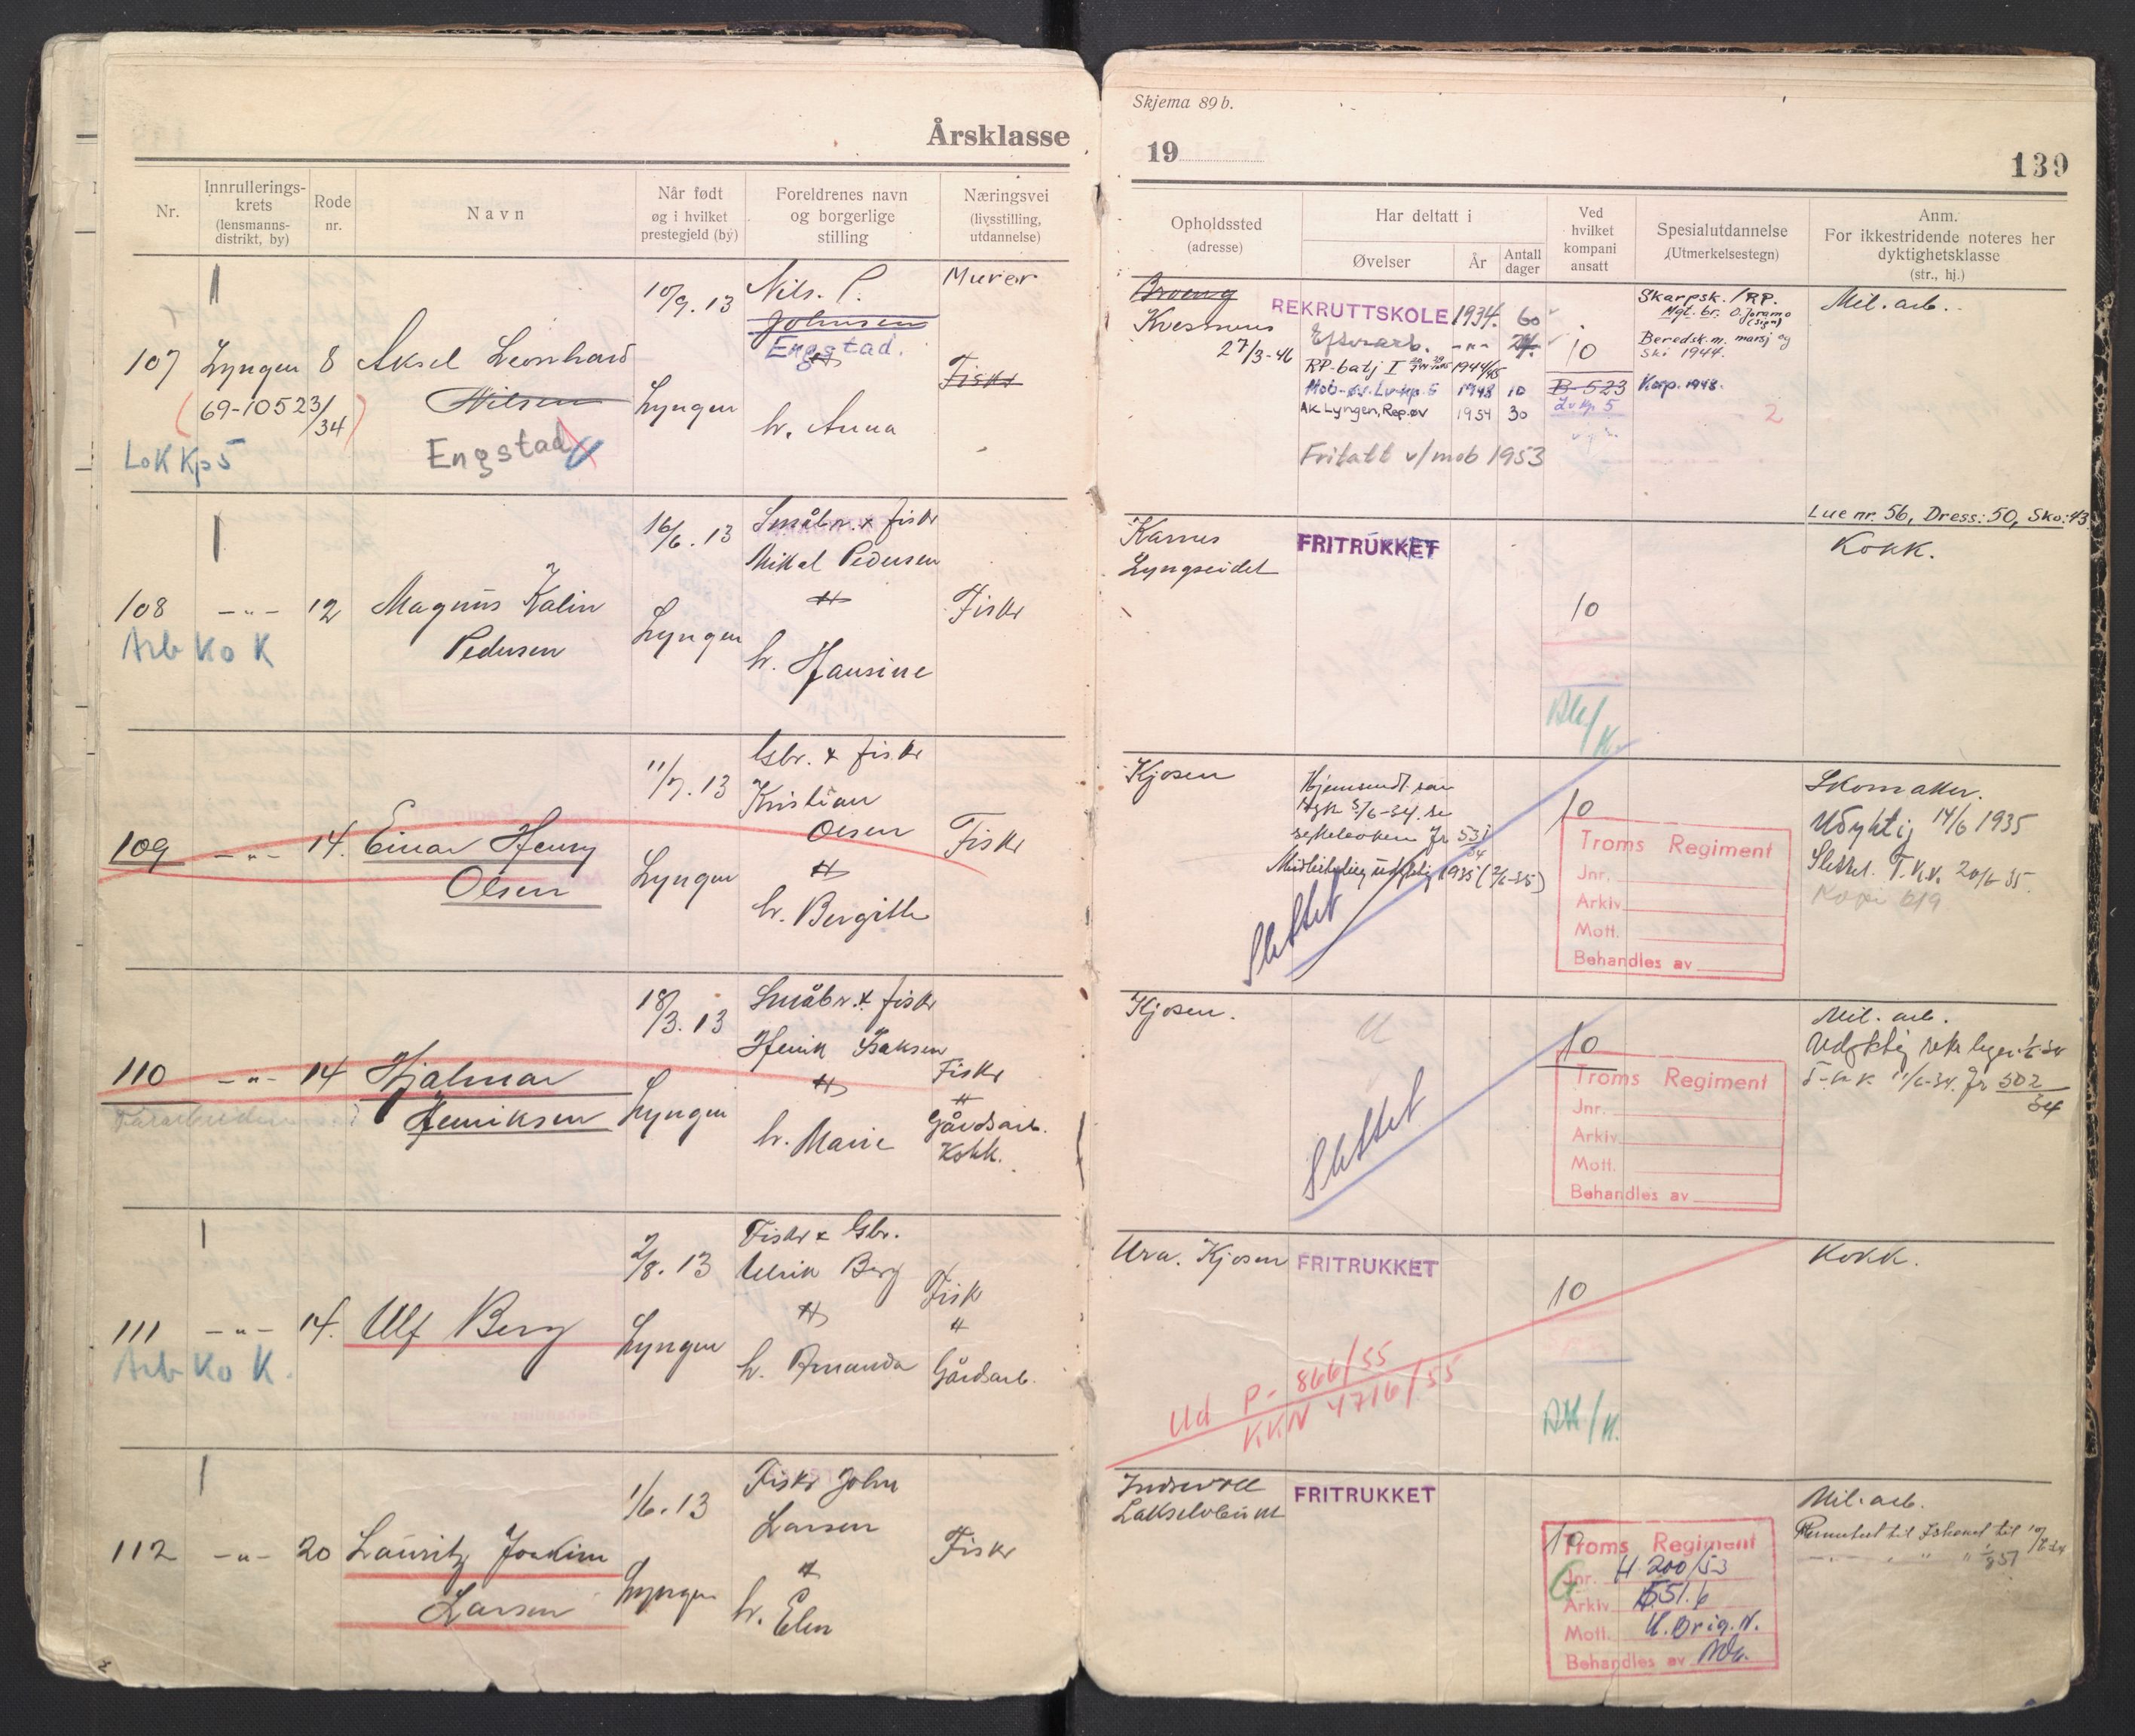 Årsklasse
Nr.
Innrullerings-
krets
(lensmanns-
distrikt, by)
Rode
nr.
Navn
Når født
og i hvilket
prestegjeld (by)
Foreldrenes navn
og borgerlige
stilling
Næringsvei
(livsstilling,
utdannelse)
107 Lyngen 8 Aksel Leonhard
Nilsen
Engstad
(69-10523/34)
LoK Kp 5
10/9. 13
Lyngen
Nils. P.
Johnsen
Engstad.
h. Anna
Murer
Fisker
108 -"- 12 Magnus Kalin
Pedersen
Arb Ko K
16/6. 13
Lyngen
Småbr. & fisker
Mikal Pedersen
h. Hansine
Fisker
109 -"- 14. Einar Henry
Olsen
11/7. 13
Lyngen
Gbr. & fisker
Kristian
Olsen
h. Bergitte
Fisker
110 -"- 14 Hjalmar
Henriksen
18/3. 13
Lyngen
Småbr. & fisker
Henrik Isaksen
h. Marie
Fisker
Gårdsarb.
Kokk.
111 -"- 14. Ulf Berg
Arb Ko K.
2/8. 13
Lyngen
Fisker & Gbr.
Ulrik Berg
h. Amanda
Fisk
Gårdsarb.
112 -"- 20 Lauritz Joakim
Larsen
1/6. 13
Lyngen
Fisker John
Larsen
h. Elen
Fisker
Skjema 89 b.
19
139
Opholdssted
(adresse)
Har deltatt i
Øvelser
År
Antall
dager
Ved
hvilket
kompani
ansatt
Spesialutdannelse
(Utmerkelsestegn)
Anm.
For ikkestridende noteres her
dyktighetsklasse
(str., hj.)
Kvesmenes
27/3-46
REKRUTTSKOLE 1934. 60
Efterarb. -"- 24.
RP-batj I 1944/45
Mob-øv. Lvkp. 5 1948 10
AK Lyngen, Rep.øv 1954 30
Fritatt v/mob 1953
10
B-523
Lvkp 5
Skarpsk. / RP.
Mgt. br. O. Joramo
(sign)
Beredsk. m. marsj og
Ski 1944.
Korp. 1948.
2
Mil. arb.
Lue nr. 56, Dress: 50, Sko: 43
Karnes
Lyngseidet
FRITRUKKET
10
Kokk.
Kjosen
Hjemsendt san
sjekeboken Jr 531/34
Midlertidig udyktig 1935 (2/6-35)
Slettet
10
Troms Regiment
Jnr.
Arkiv
Mott.
Behandles av
Skomaker.
Udyktig 14/6 1935
Slettet. T.k.v. 20/6 35.
Kopi 619
Kjosen.
Slettet
10
Troms Regiment
Jnr.
Arkiv
Mott.
Behandles av
Mil. arb.
11/6-34. Jr 502/34
Ura. Kjosen
FRITRUKKET
10
Kokk.
Ud P- 866/55
KKN 4716/55
FRITRUKKET
10
Troms Regiment
Jnr. H 200/53
Arkiv 551.6
Mott. U. Orig. N.
Behandles av
G
Mil. arb.